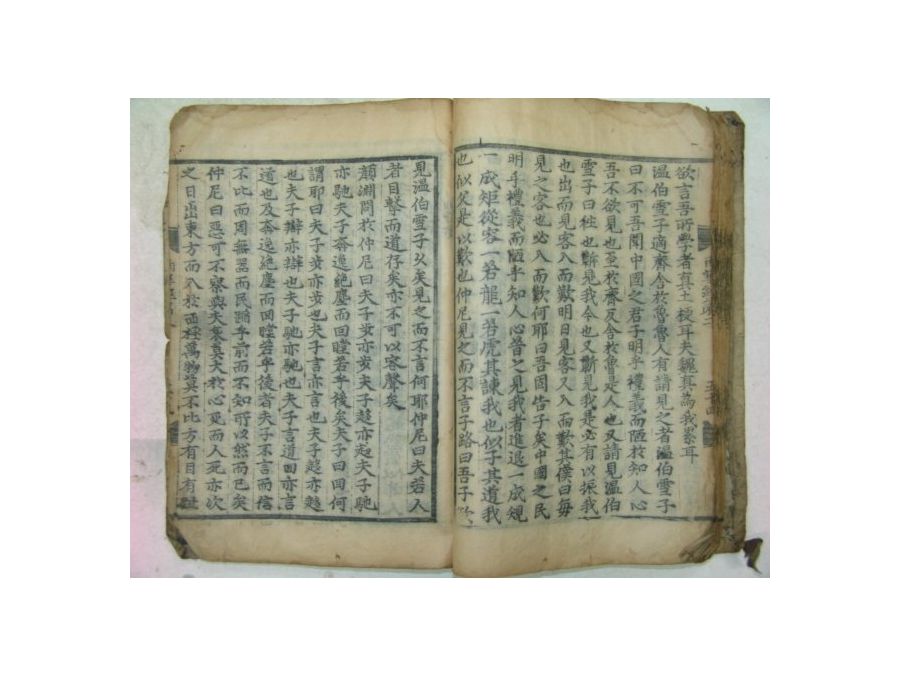 欲言吾所學者真土梗耳夫魏真爲我累耳
溫伯雪子適齊舍於魯魯人有請見之者溫伯雪子
曰不可吾聞中國之君子明乎禮義而陋於知人心
吾不欲見也至於齊反舍於魯是人也又請見溫伯
雪子曰往也蘄見我今也又蘄見我是必有以振我
也出而見客入而歎明日見客又入而歎其僕曰每
見之客也必入而歎何耶曰吾固告子矣中國之民
明乎禮義而陋乎知人心昔之見我者進退一成規
一成矩從容一若龍一若虎其諫我也似子其道我
也似父是以歎也仲尼見之而不言子路曰吾子欲
見溫伯雪子久矣見之而不言何耶仲尼曰夫若人
者目擊而道存矣亦不可以容聲矣
顏淵問於仲尼曰夫子步亦步夫子趨亦趨夫子馳
亦馳夫子奔逸絶塵而回瞠若乎後矣夫子曰回何
謂耶曰夫子步亦步也夫子言亦言也夫子趨亦趨
也夫子辯亦辯也夫子馳亦馳也夫子言道回亦言
道也及奔逸絶塵而回瞠若乎後者夫子不言而信
不比而周無器而民蹈乎前而不知所以然而已矣
仲尼曰惡可不察與夫哀莫大於心死而人死亦次
之日出東方而入於西極萬物莫不比方有目有趾